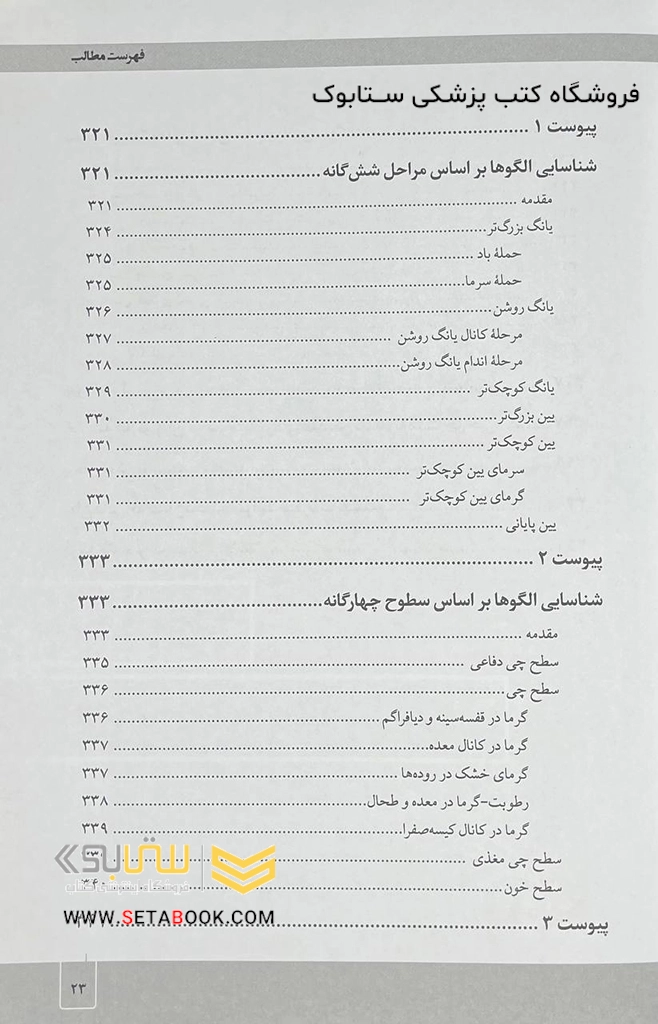 فهرست مطالب
فروشگاه کتب پزشکی ســتابوک
پیوست ۱ ........................ ۳۲۱
شناسایی الگوها بر اساس مراحل شش‌گانه ........................ ۳۲۱
مقدمه ........................ ۳۲۱
یانگ بزرگ‌تر ........................ ۳۲۴
حملهٔ باد ........................ ۳۲۵
حملهٔ سرما ........................ ۳۲۵
یانگ روشن ........................ ۳۲۶
مرحلهٔ کانال یانگ روشن ........................ ۳۲۷
مرحلهٔ اندام یانگ روشن ........................ ۳۲۸
یانگ کوچک‌تر ........................ ۳۲۹
یین بزرگ‌تر ........................ ۳۳۰
یین کوچک‌تر ........................ ۳۳۱
سرمای یین کوچک‌تر ........................ ۳۳۱
گرمای یین کوچک‌تر ........................ ۳۳۱
یین پایانی ........................ ۳۳۲
پیوست ۲ ........................ ۳۳۳
شناسایی الگوها بر اساس سطوح چهارگانه ........................ ۳۳۳
مقدمه ........................ ۳۳۳
سطح چی دفاعی ........................ ۳۳۵
سطح چی ........................ ۳۳۶
گرما در قفسه‌سینه و دیافراگم ........................ ۳۳۶
گرما در کانال معده ........................ ۳۳۷
گرمای خشک در روده‌ها ........................ ۳۳۷
رطوبت-گرما در معده و طحال ........................ ۳۳۸
گرما در کانال کیسه‌صفرا ........................ ۳۳۹
سطح چی مغذی ........................
ستابوک
سطح خون ........................
فروشگاه اینترنتی کتاب
WWW.SETABOOK.COM
پیوست ۳ ........................
۲۳